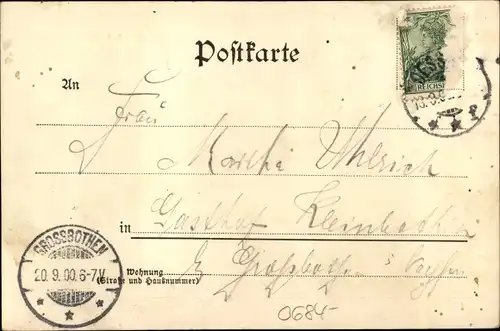 Postkarte
REICHSP
An
Frau
Martha Uhlrich
in Gasthof Kleinbothen
GROSSBOTHEN
20. 9. 00. 6-7V.
Wohnung
(Straße und Hausnummer)
Großboth. Sachsen
0684